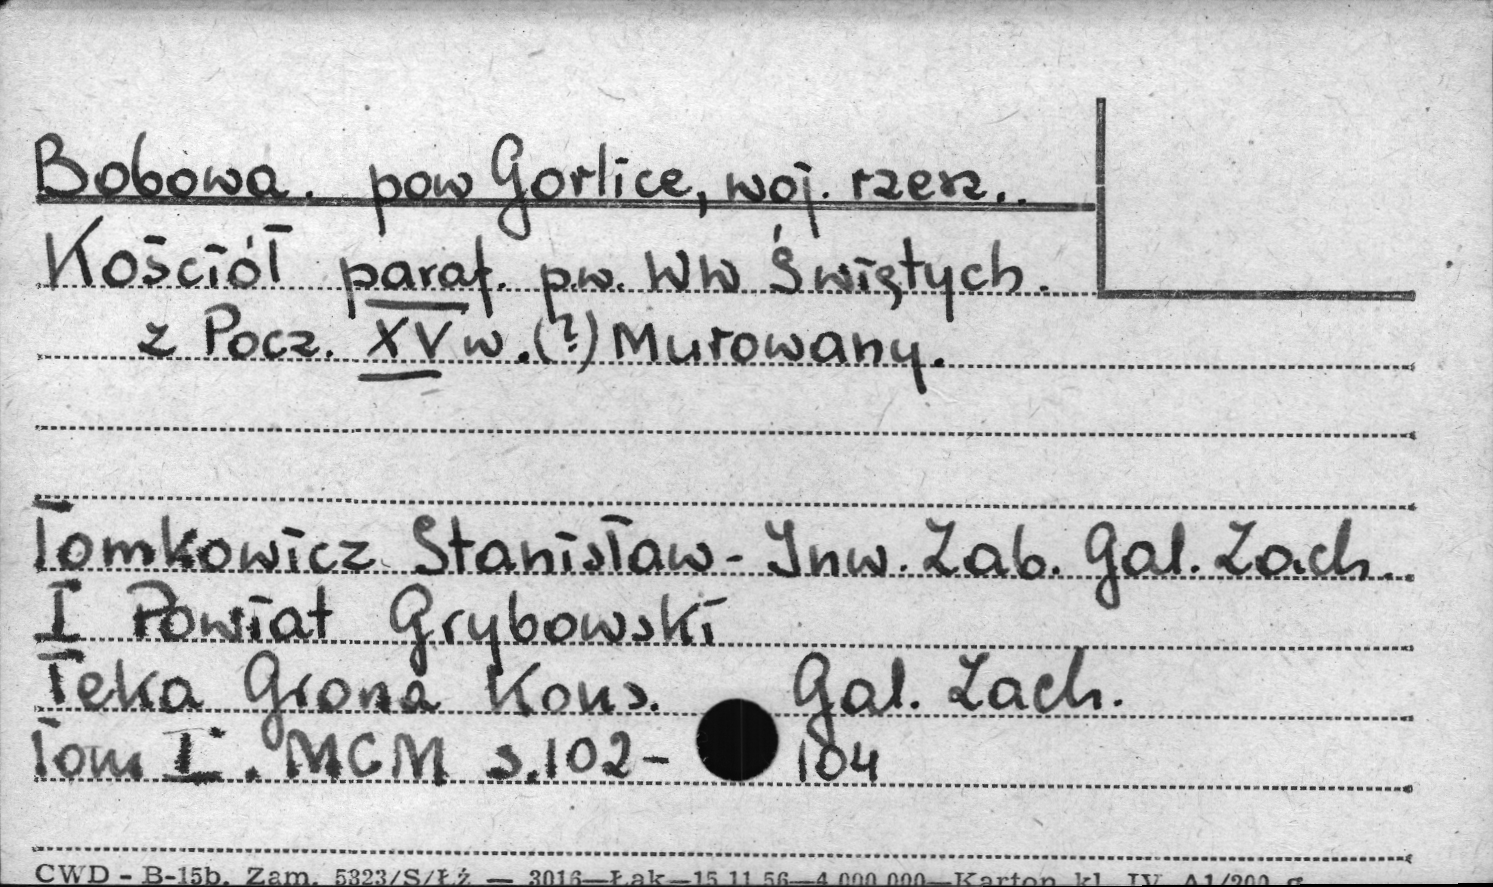 Bobowa. pow Gorlice, woj. rzesz..
Kościół paraf. pw. WW Świętych.
z Pocz. XV w. (?) Murowany.
Tomkowicz Stanisław - Inw. Zab. Gal. Zach.
I Powiat Grybowski
Teka Grona Kons. Gal. Zach.
Tom I. MCM s. 102 - 104
CWD - B-15b. Zam. 5323/S/ŁŻ — 3016—Łak—15.11.56—4.000.000—Karton kl. IV. A1/200 g